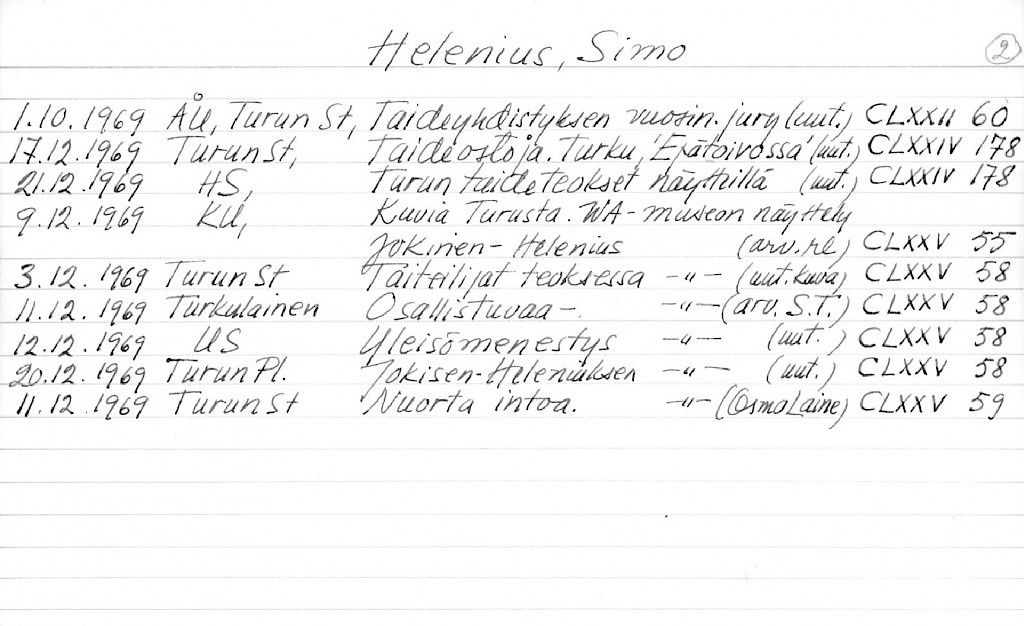 Helenius, Simo 2
1.10.1969 ÅU, Turun St, Taideyhdistyksen vuosin. jury (uut.) CLXXII 60
17.12.1969 Turun St, Taideostoja. Turku, 'Epätoivossa' (uut.) CLXXIV 178
21.12.1969 HS, Turun taideteokset näyttillä (uut.) CLXXIV 178
9.12.1969 KU, Kuvia Turusta. WA-museon näyttely
Jokinen-Helenius (arv. RL) CLXXV 55
3.12.1969 Turun St Taiteilijat teoksessa -"- (uut.kuva) CLXXV 58
11.12.1969 Turkulainen Osallistuvaa-. -"- (arv. S.T.) CLXXV 58
12.12.1969 US Yleisömenestys -"- (uut.) CLXXV 58
20.12.1969 Turun Pl. Jokisen-Heleniuksen -"- (uut.) CLXXV 58
11.12.1969 Turun St Nuorta intoa. -"- (Osmo Laine) CLXXV 59